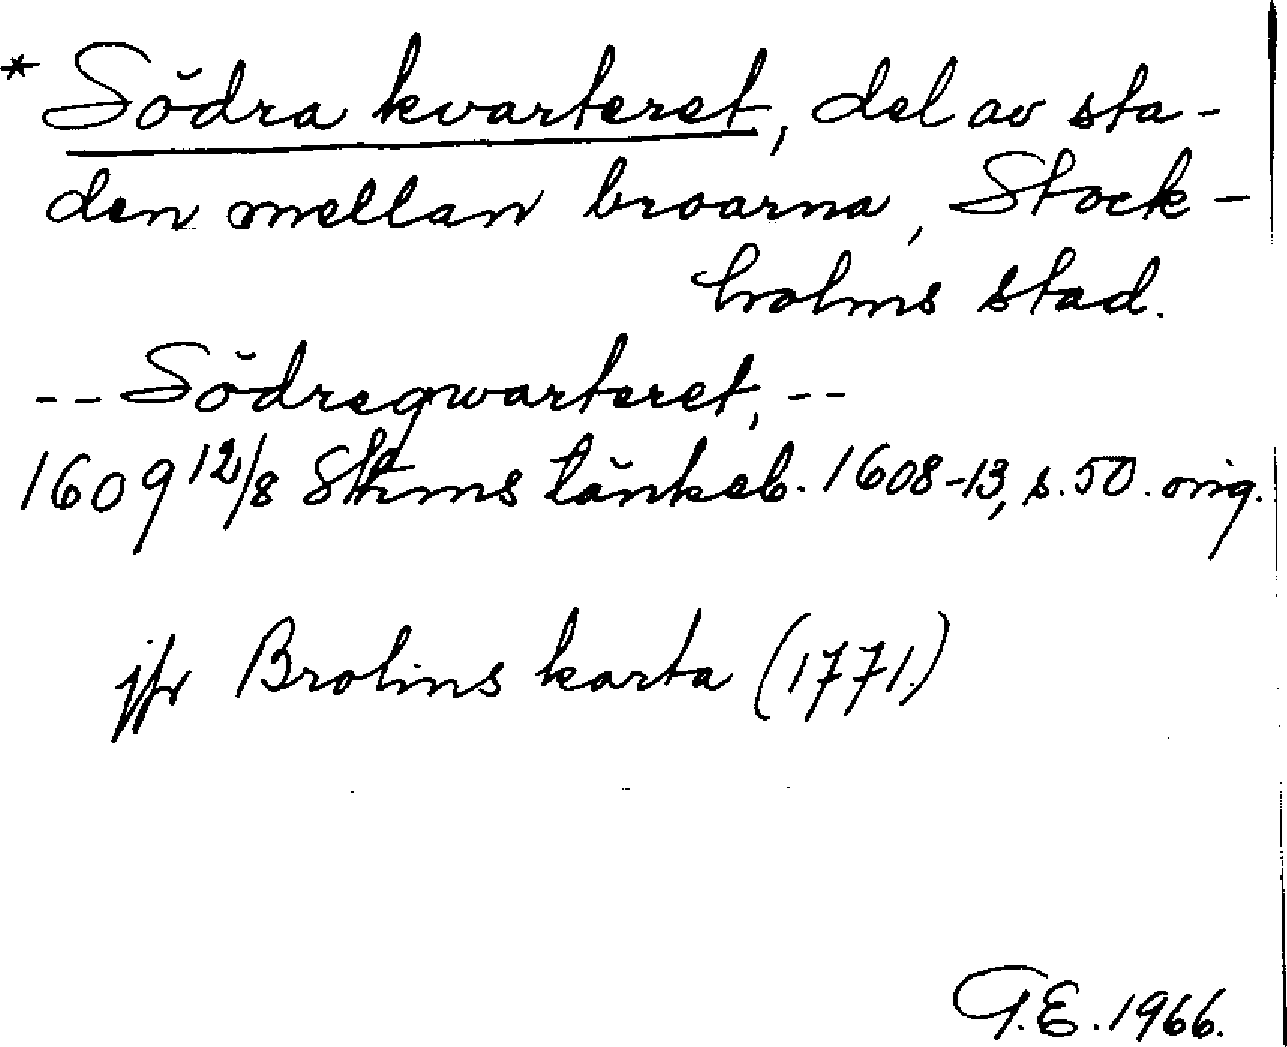 * Södra kvarteret, del av sta-
den mellan broarna, Stock-
holms stad.
-- Södreqwarteret, --
1609 12/8 Sthms tänkeb. 1608-13, s. 50. orig.
jfr Brolins karta (1771)
G.E. 1966.